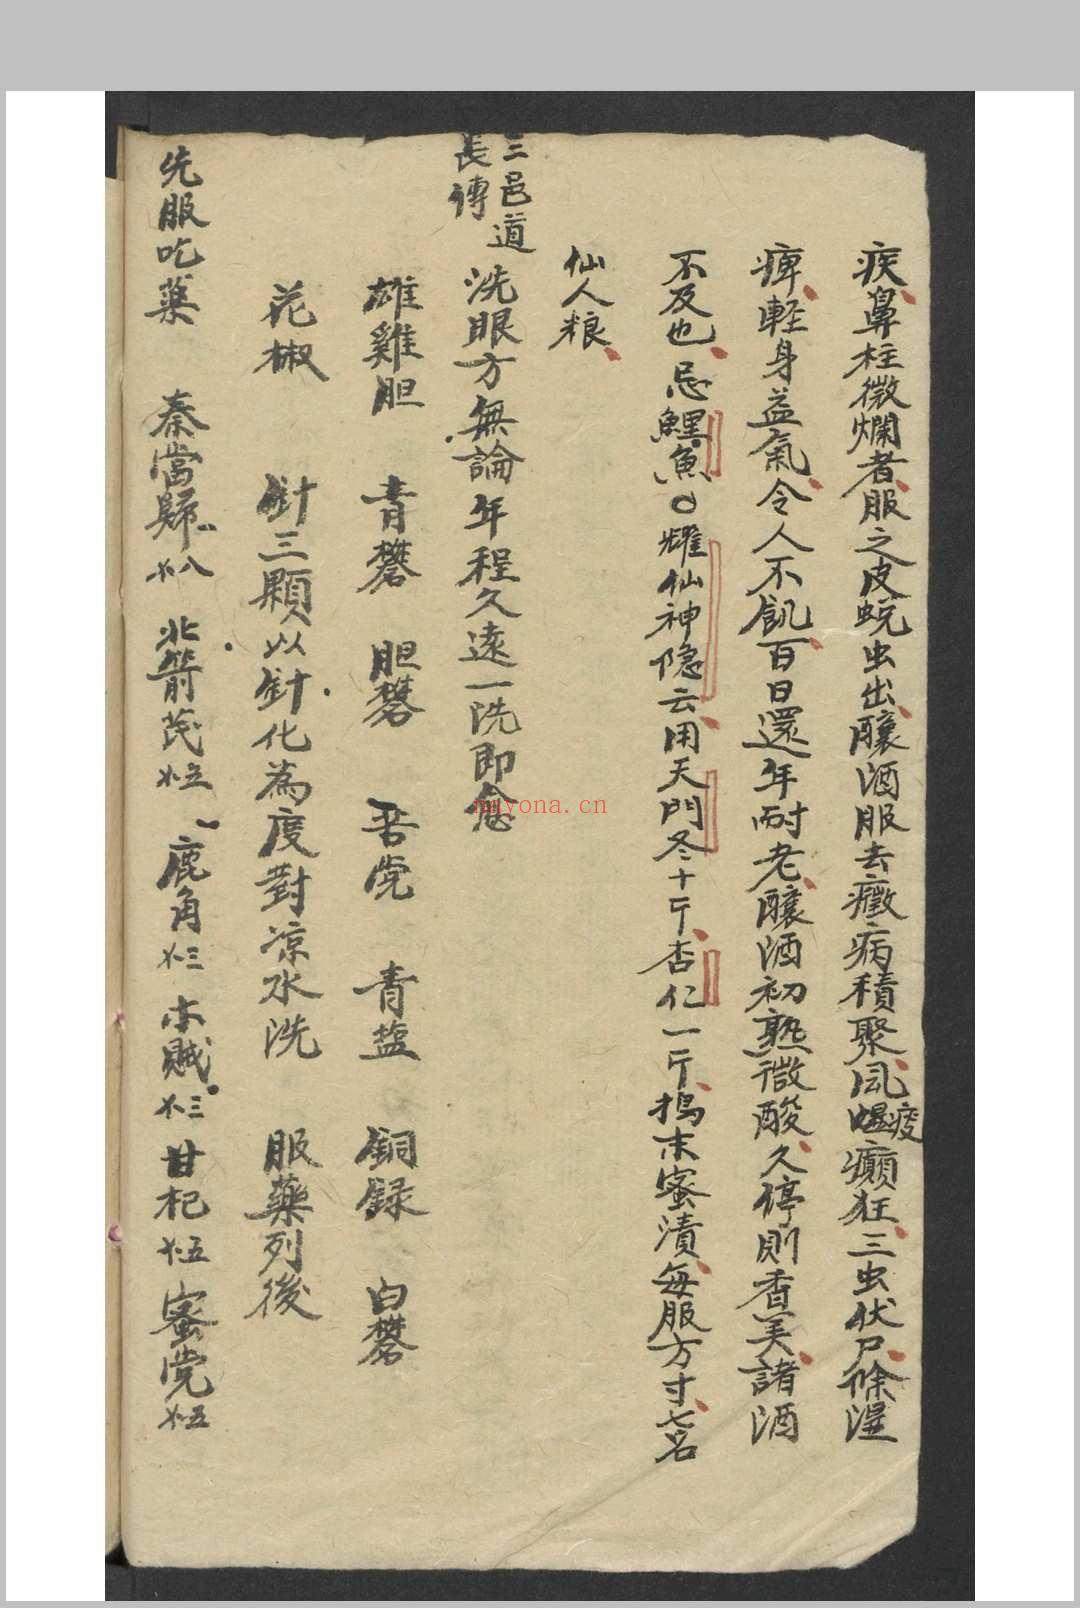 疾鼻柱微爛者服之皮蜕虫出釀酒服去癥病積聚風䗈疫癲狂三虫伏尸除湿
痺軽身益氣令人不飢百日還年耐老釀酒初熟微酸久停則香美諸酒
不及也忌鯉魚〇臞仙神隐云用天門冬十斤杏仁一斤搗末蜜漬每服方寸七名
仙人粮
三邑道
長傳
洗眼方無論年程久遠一洗即愈
雄雞胆 青礬 胆礬 吾党 青盐 銅録 白礬
花椒 針三顆以針化為度對凉水洗 服藥列後
先服吃藥 秦當歸 八 北箭芪 五 鹿角 三 木贼 三 甘杞 五 蜜党 五
nayona.cn